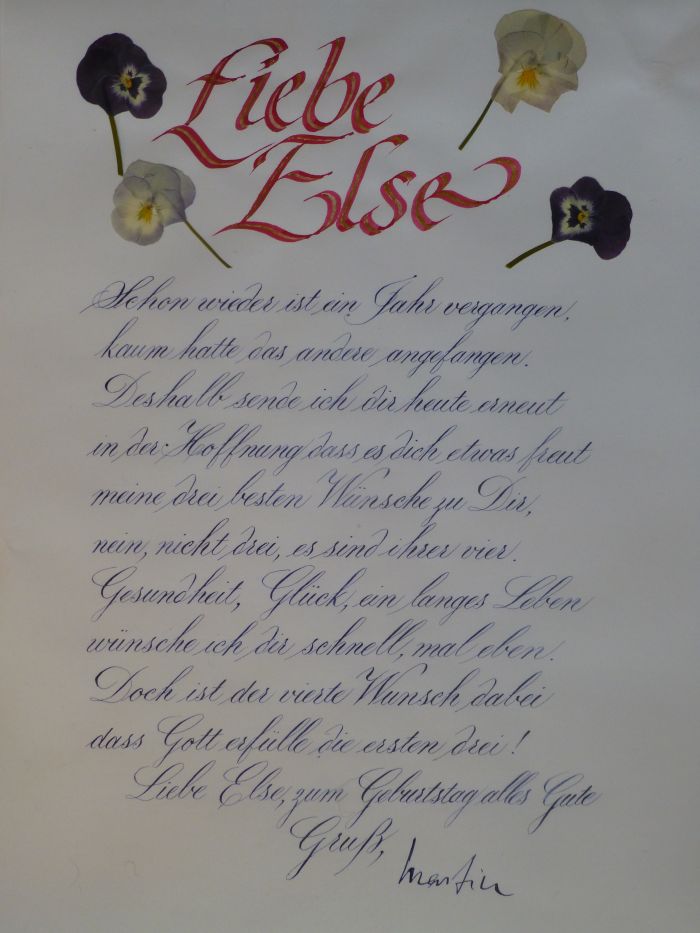 Liebe
Else
Schon wieder ist ein Jahr vergangen,
kaum hatte das andere angefangen.
Deshalb sende ich dir heute erneut
in der Hoffnung dass es dich etwas freut
meine drei besten Wünsche zu Dir,
nein, nicht drei, es sind ihrer vier.
Gesundheit, Glück, ein langes Leben
wünsche ich dir schnell, mal eben.
Doch ist der vierte Wunsch dabei
dass Gott erfülle die ersten drei!
Liebe Else, zum Geburtstag alles Gute
Gruß,
Martin